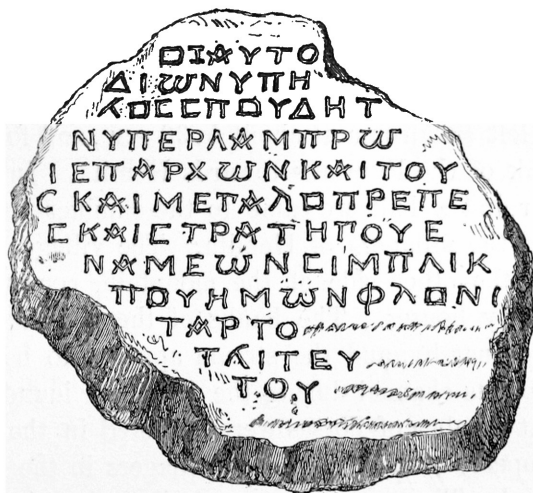 ΟΙΑΥΤΟ
ΔΙΩΝΥΠΗ
ΛΟϹϹΠΟΥΔΗΤ
ΝΥΠΕΡΛΑΜΠΡΩ
ΙΕΠΑΡΧΩΝΚΑΙΤΟΥ
ϹΚΑΙΜΕΓΑΛΟΠΡΕΠΕ
ϹΚΑΙϹΤΡΑΤΗΓΟΥΕ
ΝΑΜΕΩΝϹΙΜΠΛΙΚ
ΠΟΥΗΜΩΝΦΛΟΝΙ
ΤΑΡΤΟ
ΤΛΙΤΕΥ
ΤΟΥ